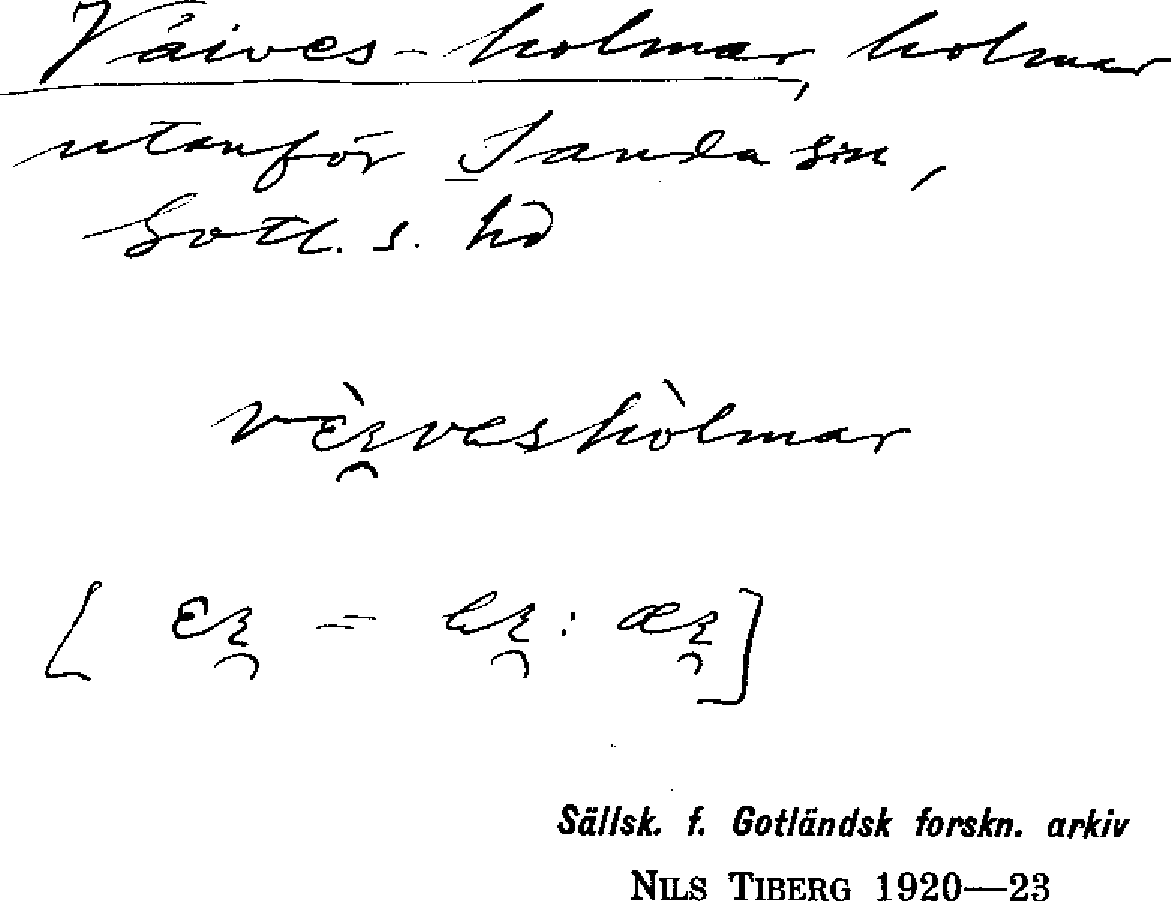 Väives-holmar, holmar
utanför Sanda sn,
Gotl. s. hd
vɛ̀ı̯veshòlmar
[ ɛı̯ = eı̯ : æı̯ ]
Sällsk. f. Gotländsk forskn. arkiv
NILS TIBERG 1920—23